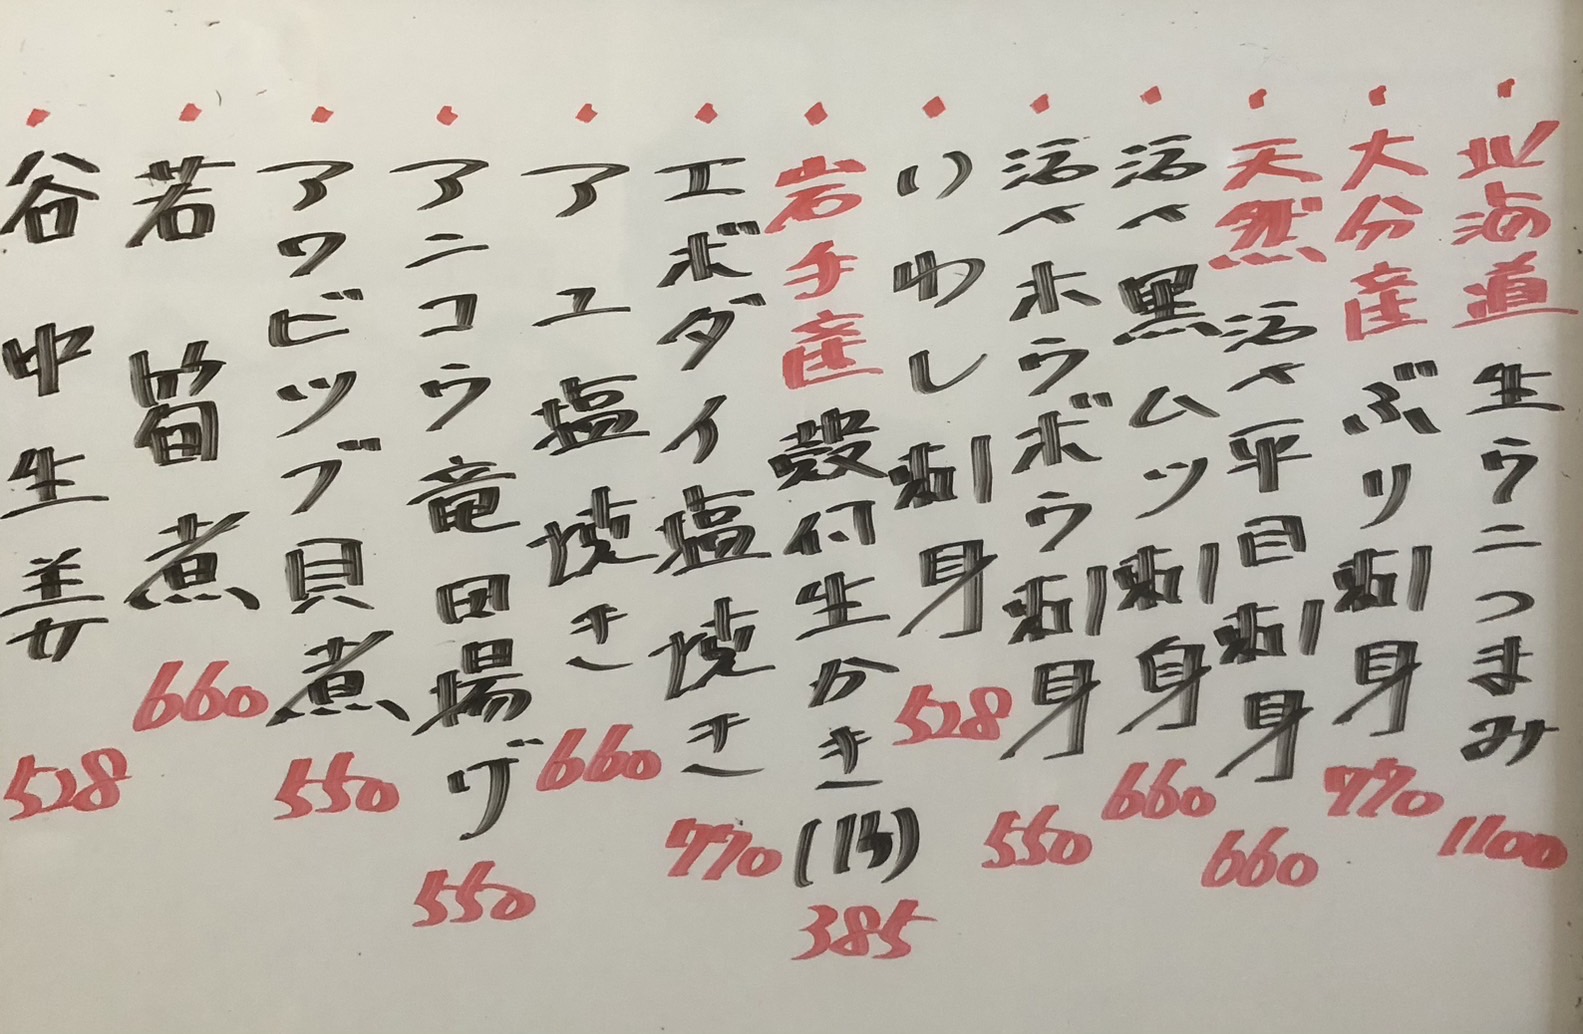 ・北海道 生ウニつまみ 1100
・大分産 ぶり刺身 770
・天然 活〆平目刺身 660
・活〆黒ムツ刺身 660
・活〆ホウボウ刺身 550
・いわし刺身 528
・岩手産 殻付生かき(1ケ) 385
・エボダイ塩焼き 770
・アユ塩焼き 660
・アンコウ竜田揚げ 550
・アワビツブ貝煮 550
・若筍煮 660
・谷中生姜 528